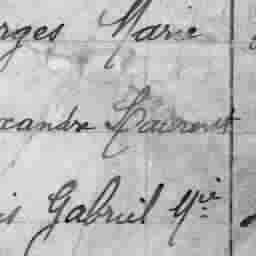 rges Marie
xandre Laurent
is Gabriel Mie